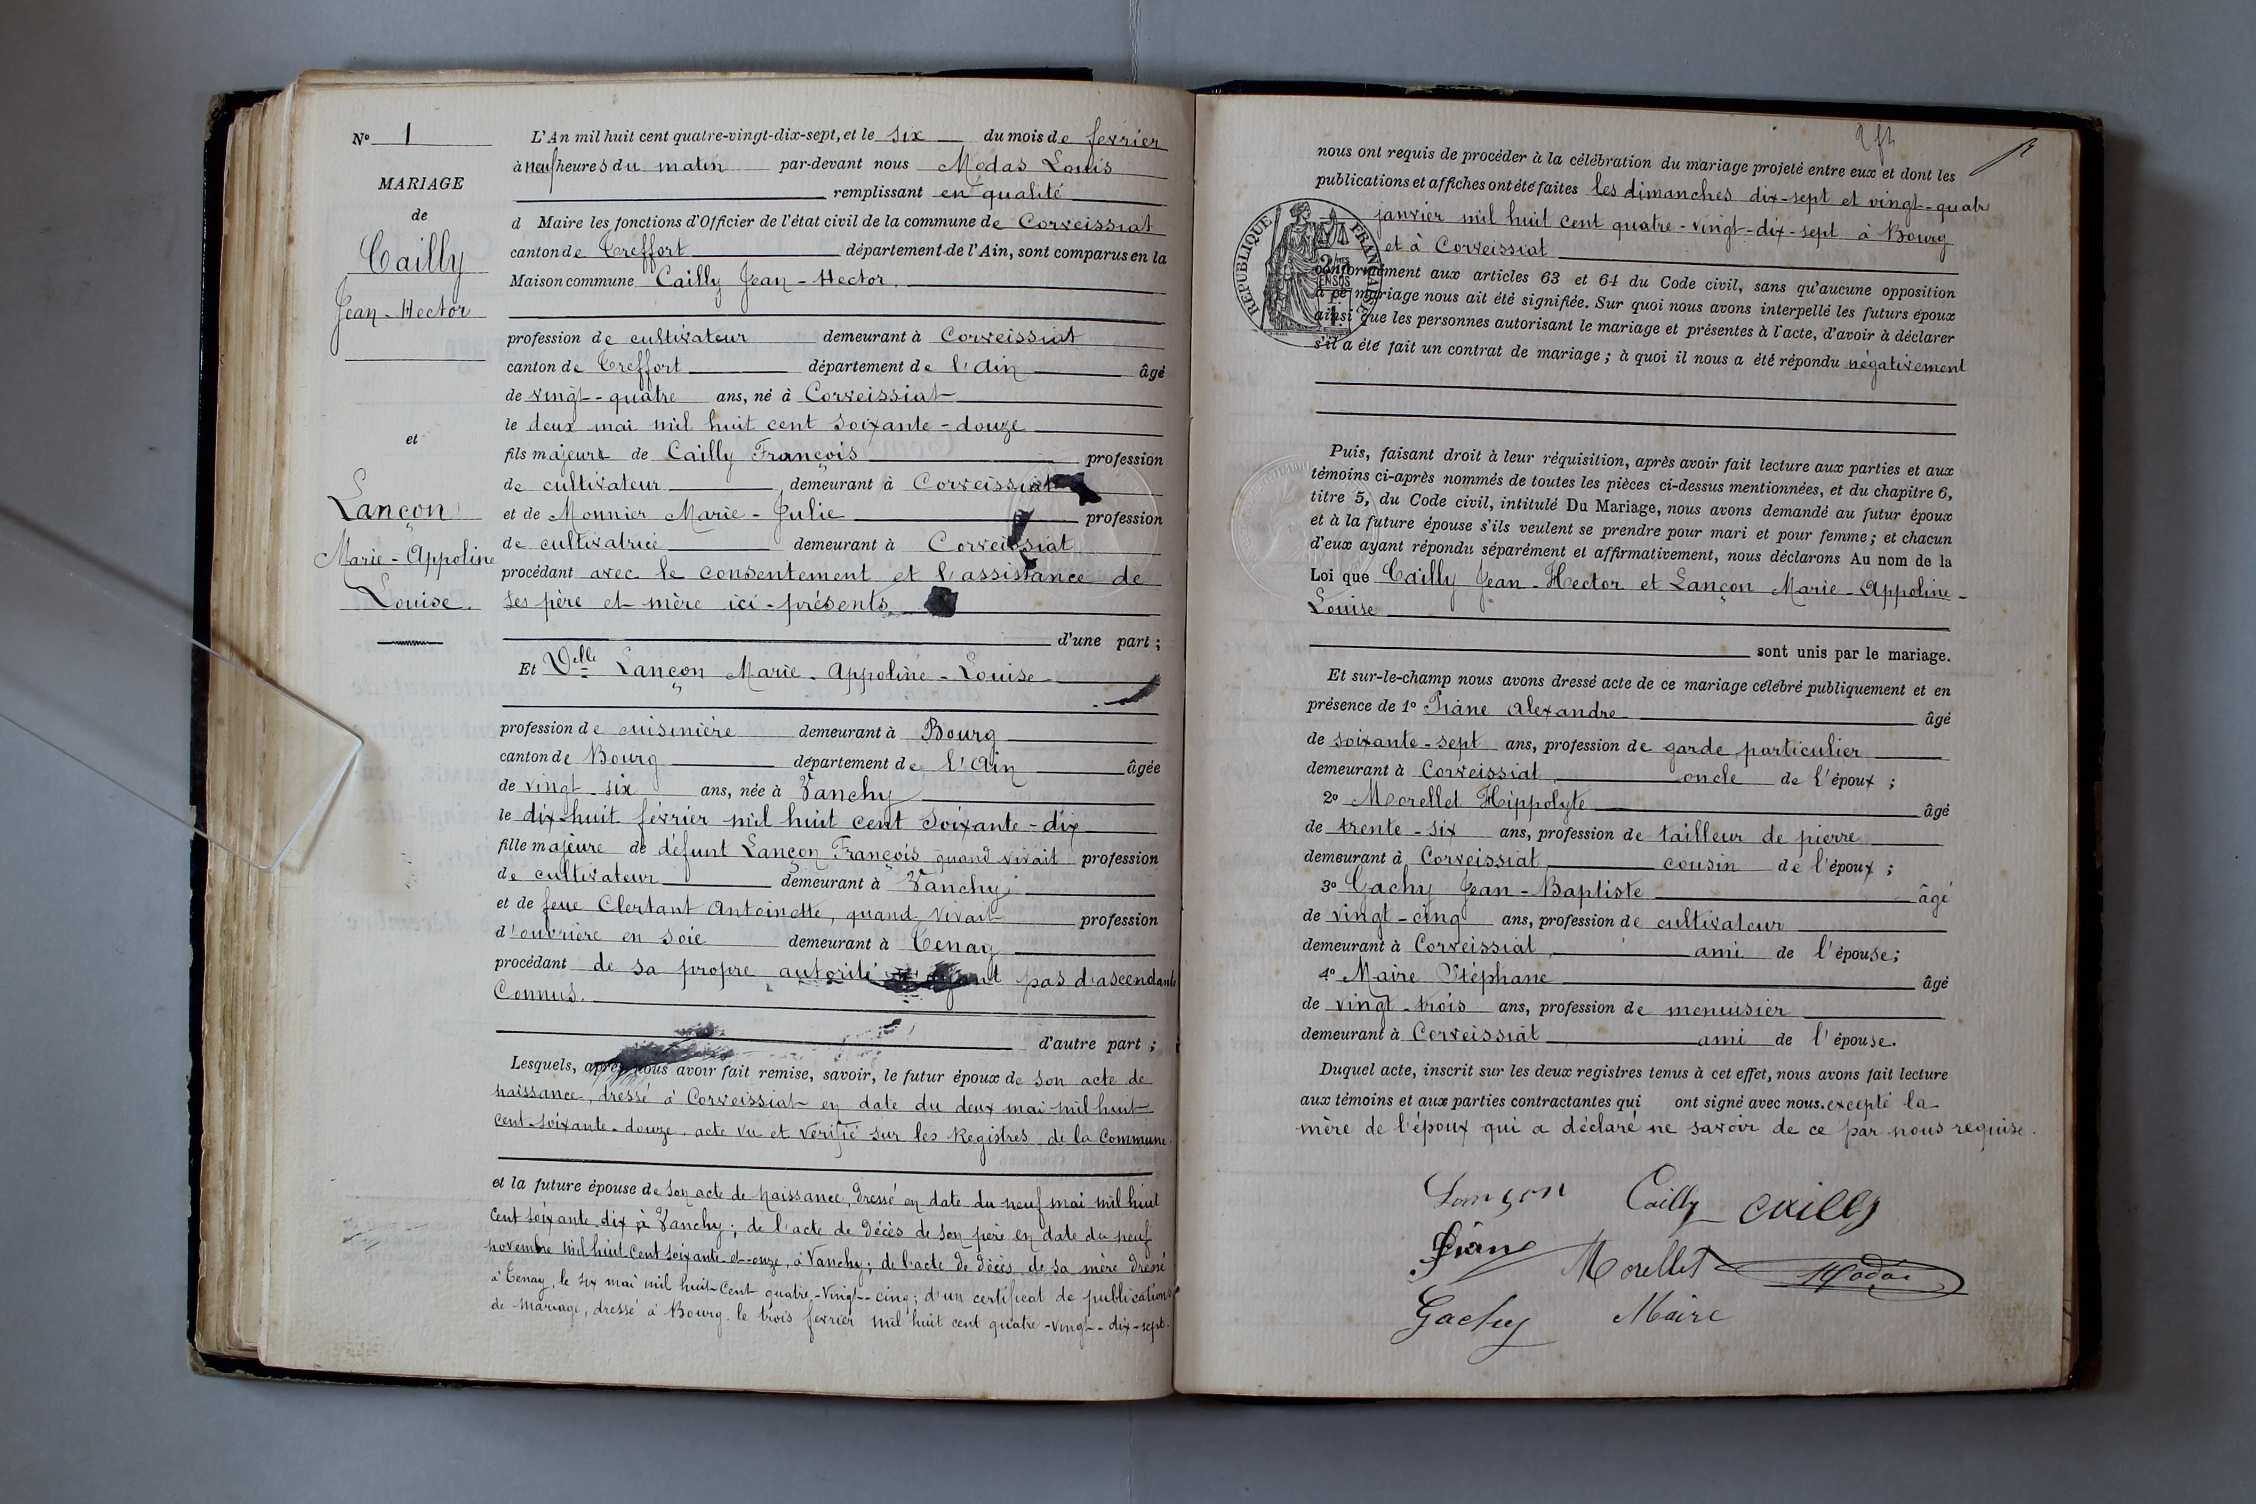 N° 1
MARIAGE
de
Cailly
Jean-Hector
et
Lançon
Marie-Appoline
Louise.
L'An mil huit cent quatre-vingt-dix-sept, et le six du mois de février
à neuf heures du matin par-devant nous Modas Louis
remplissant en qualité
d Maire les fonctions d'Officier de l'état civil de la commune de Corveissiat
canton de Treffort département de l'Ain, sont comparus en la
Maison commune Cailly Jean-Hector.
profession de cultivateur demeurant à Corveissiat
canton de Treffort département de l'Ain âgé
de vingt-quatre ans, né à Corveissiat
le deux mai mil huit cent soixante-douze
fils majeur de Cailly François profession
de cultivateur demeurant à Corveissiat
et de Monnier Marie-Julie profession
de cultivatrice demeurant à Corveissiat
procédant avec le consentement et l'assistance de
ses père et mère ici-présents
d'une part;
Et Delle Lançon Marie-Appoline-Louise
profession de cuisinière demeurant à Bourg
canton de Bourg département de l'Ain âgée
de vingt-six ans, née à Vanchy
le dix-huit février mil huit cent soixante-dix
fille majeure de défunt Lançon François quand vivait profession
de cultivateur demeurant à Vanchy
et de feue Clertant Antoinette, quand vivait profession
d'ouvrière en soie demeurant à Tenay
procédant de sa propre autorité ayant pas d'ascendants
Connus.
d'autre part;
Lesquels, après nous avoir fait remise, savoir, le futur époux de son acte de
naissance, dressé à Corveissiat en date du deux mai mil huit
cent-soixante-douze, acte vu et vérifié sur les Registres de la Commune.
et la future épouse de son acte de naissance, dressé en date du neuf mai mil huit
cent soixante dix à Vanchy; de l'acte de décès de son père en date du neuf
novembre mil huit cent soixante-et-onze, à Vanchy; de l'acte de décès de sa mère dressé
à Tenay, le six mai mil huit-cent quatre-vingt-cinq; d'un certificat de publications
de mariage, dressé à Bourg le trois février mil huit cent quatre-vingt-dix-sept.
nous ont requis de procéder à la célébration du mariage projeté entre eux et dont les
publications et affiches ont été faites les dimanches dix-sept et vingt-quatre
janvier mil huit cent quatre-vingt-dix-sept à Bourg
et à Corveissiat
RÉPUBLIQUE FRANÇAISE
conformément aux articles 63 et 64 du Code civil, sans qu'aucune opposition
à ce mariage nous ait été signifiée. Sur quoi nous avons interpellé les futurs époux
ainsi que les personnes autorisant le mariage et présentes à l'acte, d'avoir à déclarer
s'il a été fait un contrat de mariage; à quoi il nous a été répondu négativement
Puis, faisant droit à leur réquisition, après avoir fait lecture aux parties et aux
témoins ci-après nommés de toutes les pièces ci-dessus mentionnées, et du chapitre 6,
titre 5, du Code civil, intitulé Du Mariage, nous avons demandé au futur époux
et à la future épouse s'ils veulent se prendre pour mari et pour femme; et chacun
d'eux ayant répondu séparément et affirmativement, nous déclarons Au nom de la
Loi que Cailly Jean-Hector et Lançon Marie-Appoline-
Louise
sont unis par le mariage.
Et sur-le-champ nous avons dressé acte de ce mariage célébré publiquement et en
présence de 1° Piane Alexandre âgé
de soixante-sept ans, profession de garde particulier
demeurant à Corveissiat oncle de l'époux;
2° Morellet Hippolyte âgé
de trente-six ans, profession de tailleur de pierre
demeurant à Corveissiat cousin de l'époux;
3° Gachy Jean-Baptiste âgé
de vingt-cinq ans, profession de cultivateur
demeurant à Corveissiat ami de l'épouse;
4° Maire Stéphane âgé
de vingt-trois ans, profession de menuisier
demeurant à Corveissiat ami de l'épouse.
Duquel acte, inscrit sur les deux registres tenus à cet effet, nous avons fait lecture
aux témoins et aux parties contractantes qui ont signé avec nous. excepté la
mère de l'époux qui a déclaré ne savoir de ce par nous requise.
Lançon Cailly Cailly
Piane Morellet Modas
Gachy Maire